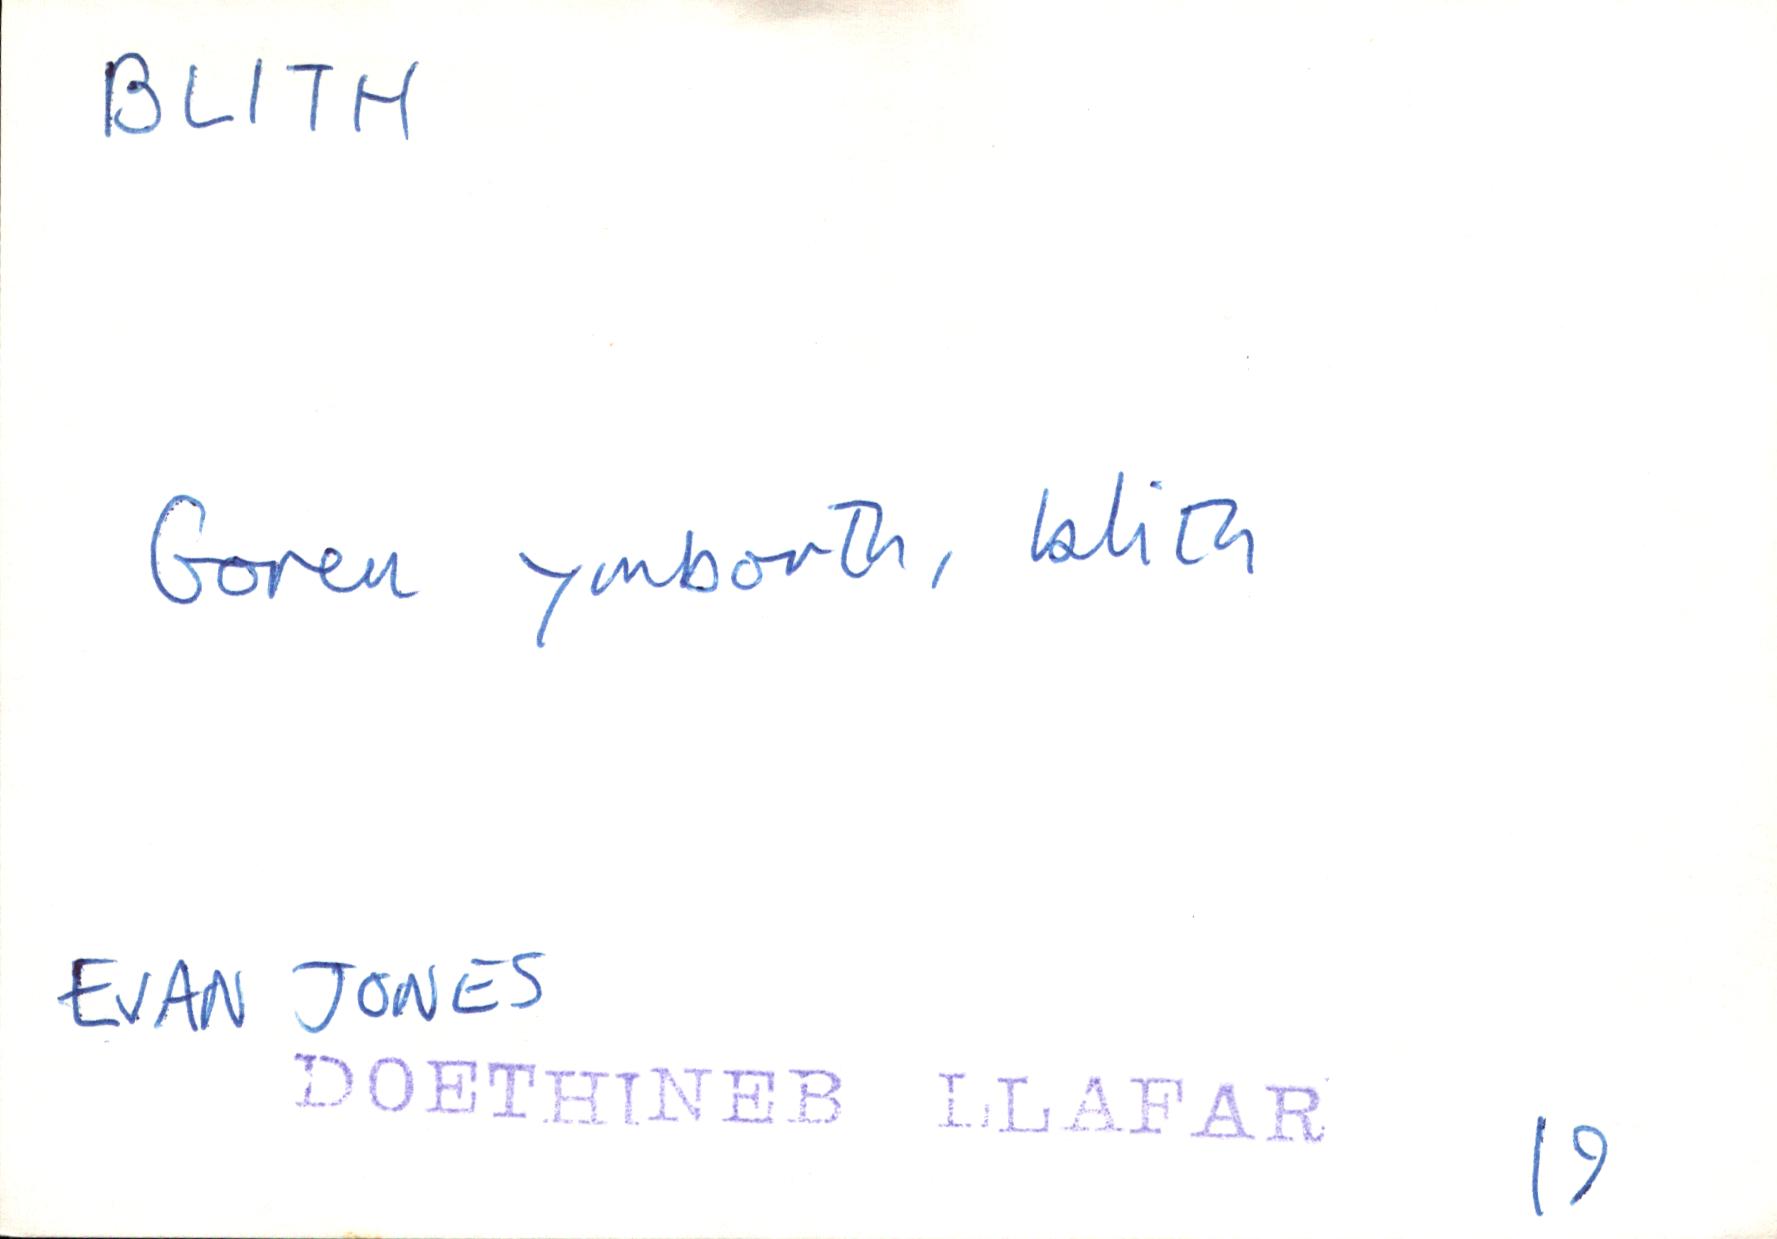 BLITH
Goreu ymborth, blith
EVAN JONES
DOETHINEB LLAFAR
19